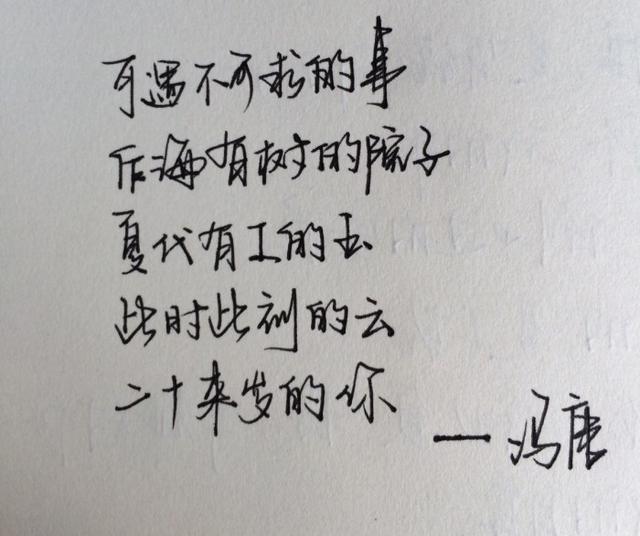 可遇不可求的事
后海有树的院子
夏代有工的玉
此时此刻的云
二十来岁的你
— 冯唐